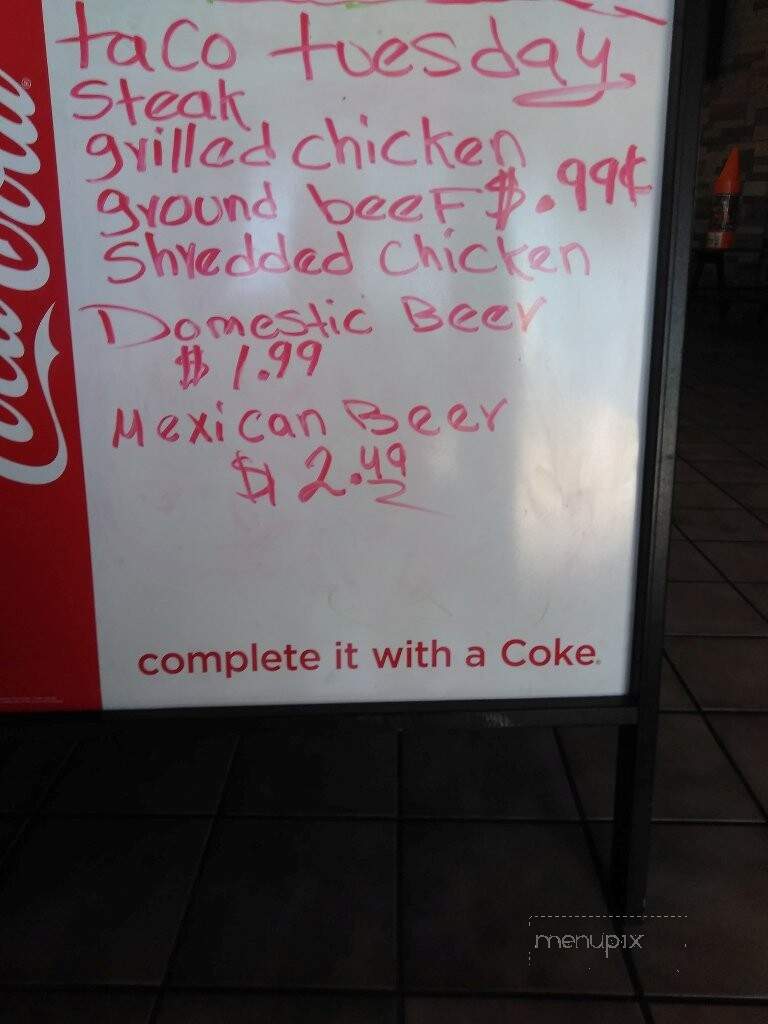 taco tuesday
Steak
grilled chicken
ground beeF $.99¢
Shredded Chicken
Domestic Beer
$1.99
Mexican Beer
$2.49
complete it with a Coke.
Coca-Cola®
menupix